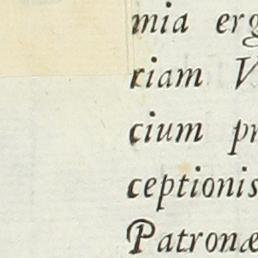 mia erg
riam V
cium pr
ceptionis
Patronæ